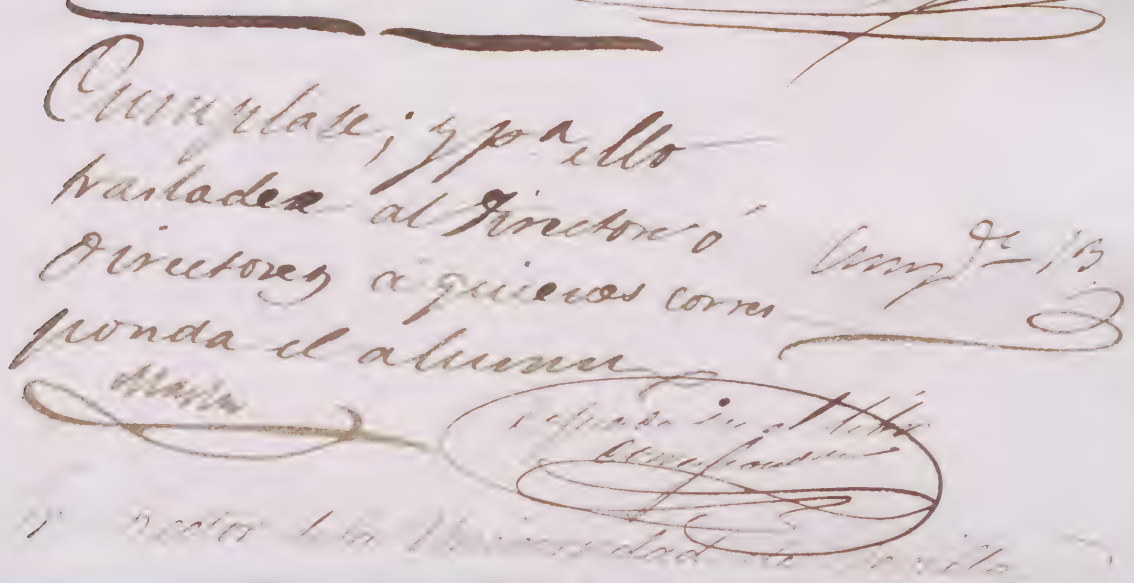 Cumplase; y pª ello
trasladese al Director ó
Directores á quienes corres
ponda el alumno
Cumpdo
Marin
Rector de la Universidad de Sevilla